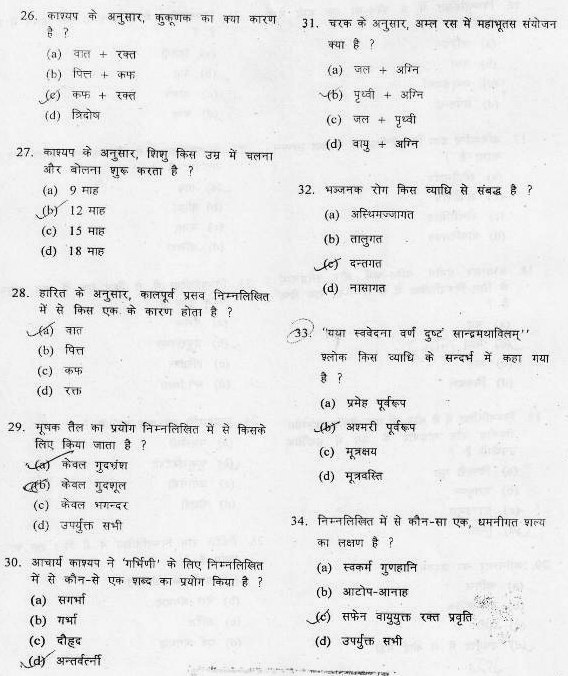 26. काश्यप के अनुसार, कुकूणक का क्या कारण
है ?
(a) वात + रक्त
(b) पित्त + कफ
(c) कफ + रक्त
(d) त्रिदोष
27. काश्यप के अनुसार, शिशु किस उम्र में चलना
और बोलना शुरू करता है ?
(a) 9 माह
(b) 12 माह
(c) 15 माह
(d) 18 माह
28. हारित के अनुसार, कालपूर्व प्रसव निम्नलिखित
में से किस एक के कारण होता है ?
(a) वात
(b) पित्त
(c) कफ
(d) रक्त
29. मूषक तैल का प्रयोग निम्नलिखित में से किसके
लिए किया जाता है ?
(a) केवल गुदभ्रंश
(b) केवल गुदशूल
(c) केवल भगन्दर
(d) उपर्युक्त सभी
30. आचार्य काश्यप ने 'गर्भिणी' के लिए निम्नलिखित
में से कौन-से एक शब्द का प्रयोग किया है ?
(a) सगर्भा
(b) गर्भा
(c) दौहृद
(d) अन्तर्वर्त्नी
31. चरक के अनुसार, अम्ल रस में महाभूतस संयोजन
क्या है ?
(a) जल + अग्नि
(b) पृथ्वी + अग्नि
(c) जल + पृथ्वी
(d) वायु + अग्नि
32. भञ्जनक रोग किस व्याधि से संबद्ध है ?
(a) अस्थिमज्जागत
(b) तालुगत
(c) दन्तगत
(d) नासागत
33. "यथा स्ववेदना वर्णं दुष्टं सान्द्रमथाविलम्"
श्लोक किस व्याधि के सन्दर्भ में कहा गया
है ?
(a) प्रमेह पूर्वरूप
(b) अश्मरी पूर्वरूप
(c) मूत्रक्षय
(d) मूत्रवस्ति
34. निम्नलिखित में से कौन-सा एक, धमनीगत शल्य
का लक्षण है ?
(a) स्वकर्म गुणहानि
(b) आटोप-आनाह
(c) सफेन वायुयुक्त रक्त प्रवृति
(d) उपर्युक्त सभी